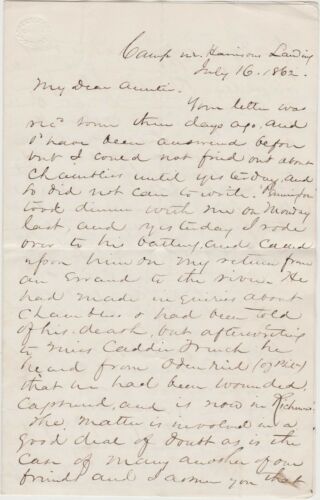 Camp nr. Harrisons Landing
July 16. 1862.
My dear Auntie.
Your letter was
recd some three days ago, and
I'd have been answered before
but I could not find out about
Chambliss until yesterday, and
so did not care to write. Pennington
took dinner with me on Monday
last, and yesterday I rode
over to his battery, and called
upon him on my return from
an errand to the river. He
had made inquiries about
Chambliss & had been told
of his death, but after writing
to Miss Caddie French he
heard from
that he had been wounded,
captured, and is now in Richmond.
The matter is involved in a
good deal of doubt as is the
case of many another of our
friends and I assure you that